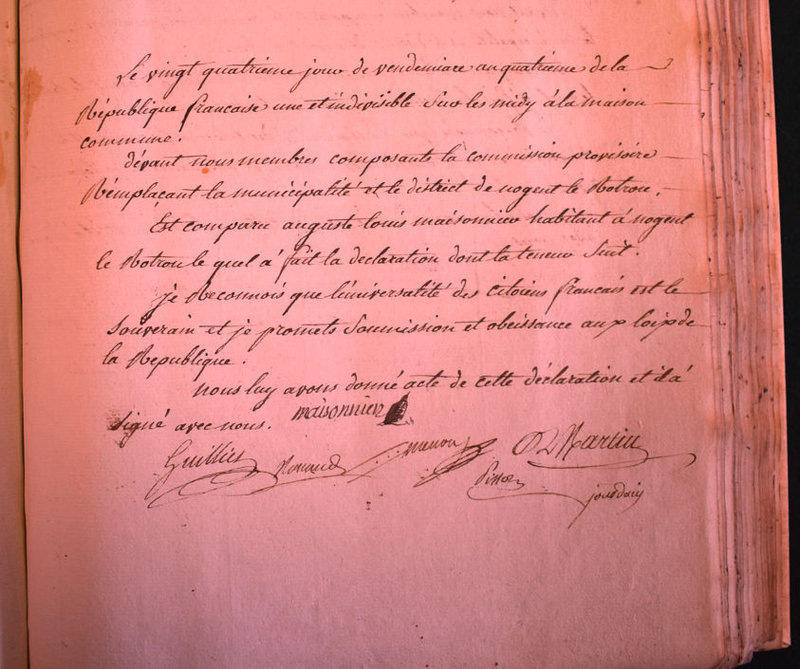 Le vingt quatrieme jour de vendemiare an quatrieme de la
République francaise une et indivisible Sur les midy à la maison
commune.
dévant nous membres composants la commission provisoire
Rémplaçant la municipalité et le district de nogent le Rotrou.
Est comparu auguste louis maisonnier habitant à nogent
le Rotrou le quel á fait la declaration dont la teneur Suit.
je Reconnois que l'universalité des citoiens francais est le
Souverain et je promets Soumission et obeissance aux loix de
la Republique.
nous luy avons donné acte de cette déclaration et il á
signé avec nous. maisonnier
Guillier Renaud Martin
jourdain